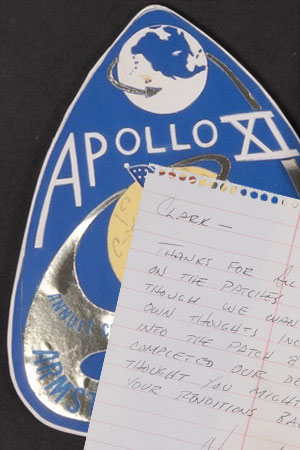 APOLLO XI
ARMS
CLARK —
THANKS FOR AL
ON THE PATCHES
THOUGH WE WAN
OWN THOUGHTS INC
INTO THE PATCH &
COMPLETED OUR DE
THOUGHT YOU MIGHT
YOUR RENDITIONS BA